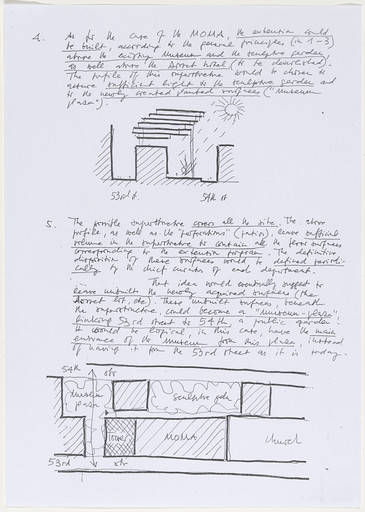 4. As for the case of the MOMA, the extension could
be built, according to the general principles (in 1-3)
above the existing Museum and the sculpture garden,
as well above the Dorset hotel (to be demolished).
The profile of this superstructure would be chosen to
assure sufficient light to the sculpture garden and
to the newly created planted surfaces ("museum
plaza").
53rd st. 54th st
5. The possible superstructure covers all the site. The above
profile, as well as the "perforations" (patios), leave sufficient
volume in the superstructure to contain all the floor surfaces
corresponding to the extension program. The definitive
disposition of these surfaces would be defined periodi-
cally by the chief curator of each department.
That idea would eventually suggest to
leave unbuilt the newly acquired surfaces (the
Dorset lot, etc). These unbuilt surfaces, beneath
the superstructure, could become a "museum-plaza",
linking 53rd street to 54th, a public garden.
It would be logical, in this case, have the main
entrance of the Museum from this plaza, instead
of having it from the 53rd street as it is today.
54th str
Museum
plaza
sculpture gdn
tower
MOMA
church
53rd str